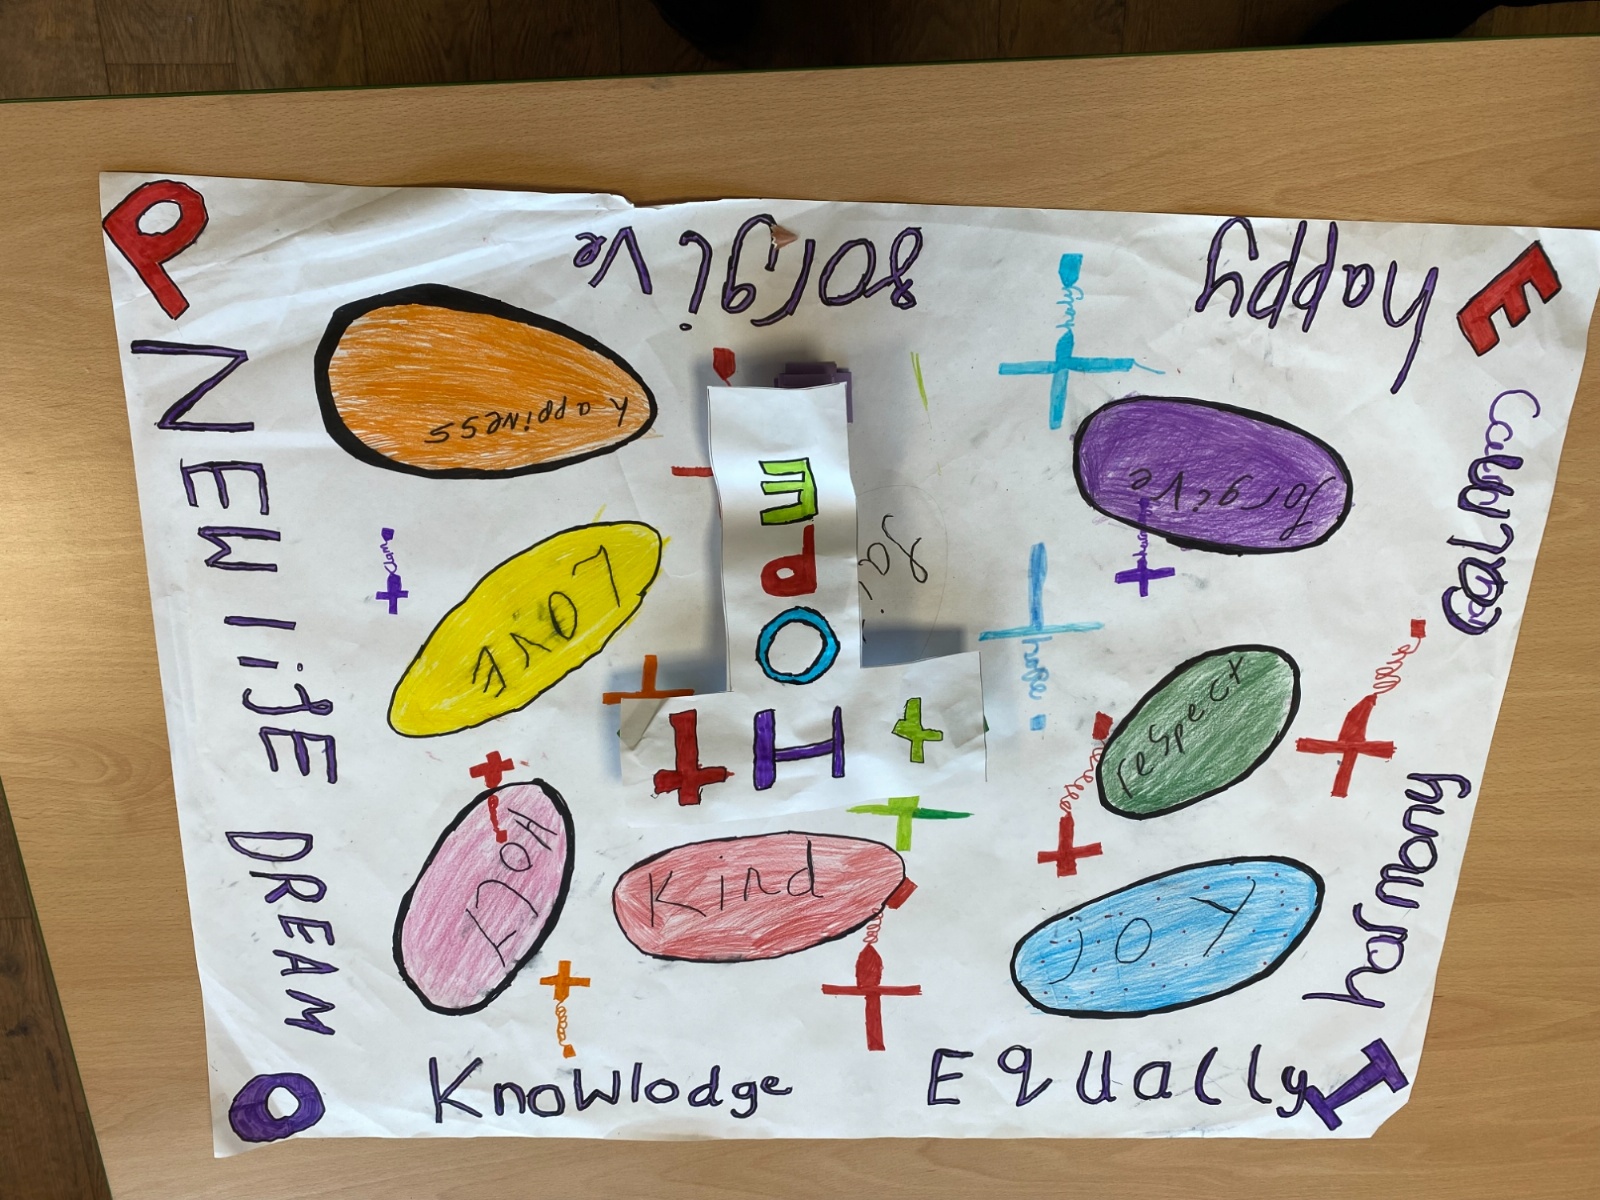 P
E
O
I
forgive
happy
NEW lifE DREAM
Knowlodge
Equally
harmony
happiness
LOVE
HOLY
Kind
forgive
respect
JOY
HOPE
hope